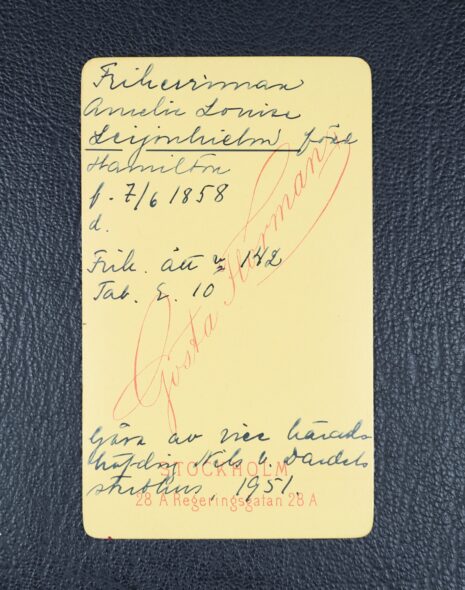 Friherrinnan
Amelie Louise
Leijonhielm född
Hamilton
f. 7/6 1858
d.
Frih. ätt № 142
Tab. 10
Gösta Florman
Gåva av vice härads
höfding Nils v. Dardel
1951.
STOCKHOLM
28 A Regeringsgatan 28 A